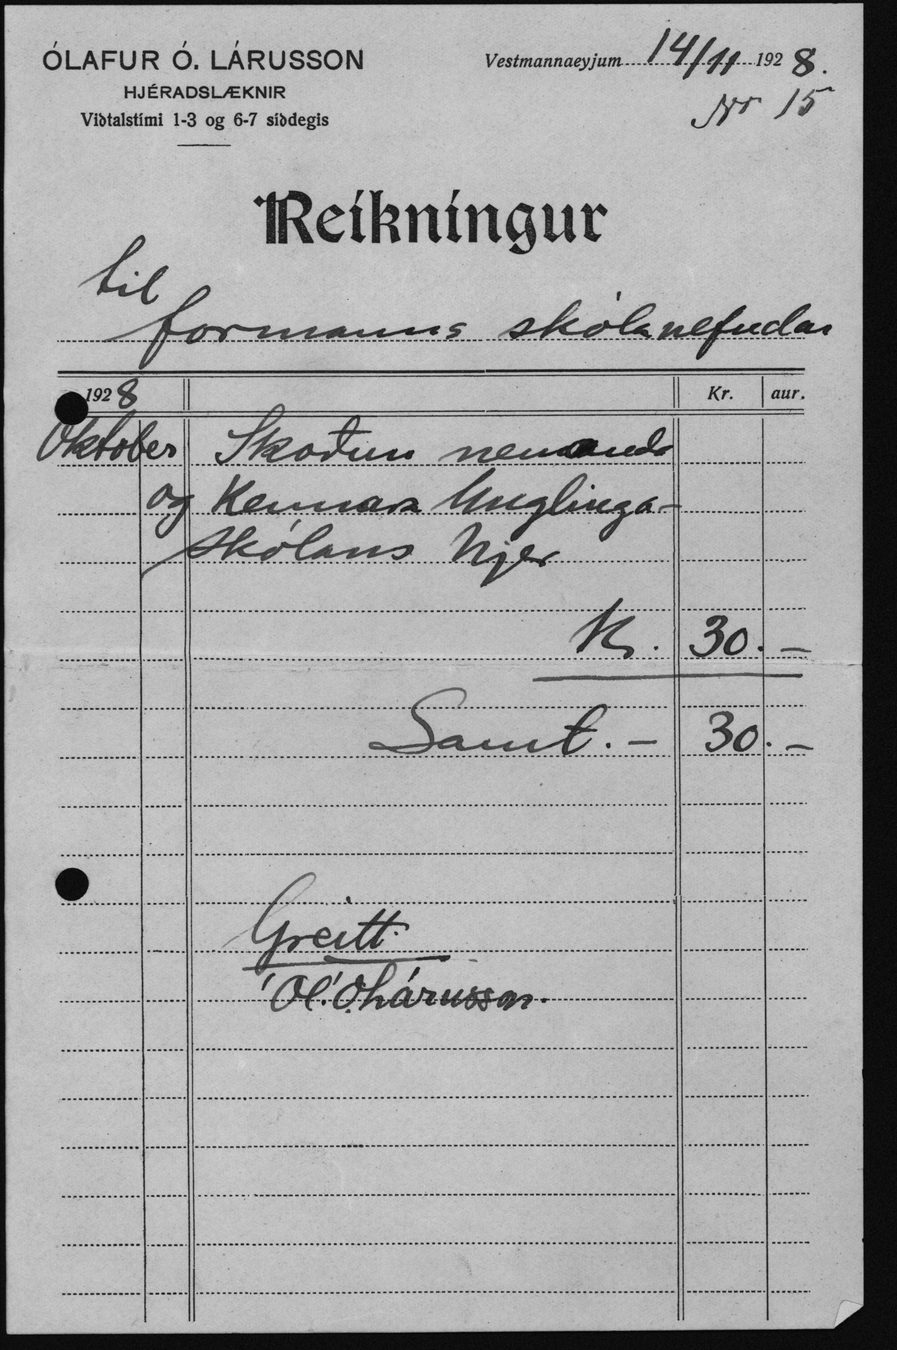 ÓLAFUR Ó. LÁRUSSON
HJÉRADSLÆKNIR
Viðtalstími 1-3 og 6-7 síðdegis
Vestmannaeyjum 14/11 1928.
Nr 15
Reikningur
til
formanns skólanefndar
1928 Kr. aur.
Oktober Skoðun nemenda
og Kennara Unglinga-
skólans hjer
Kr. 30.–
Samt. – 30.–
Greitt.
Ól. Ó. Lárusson.